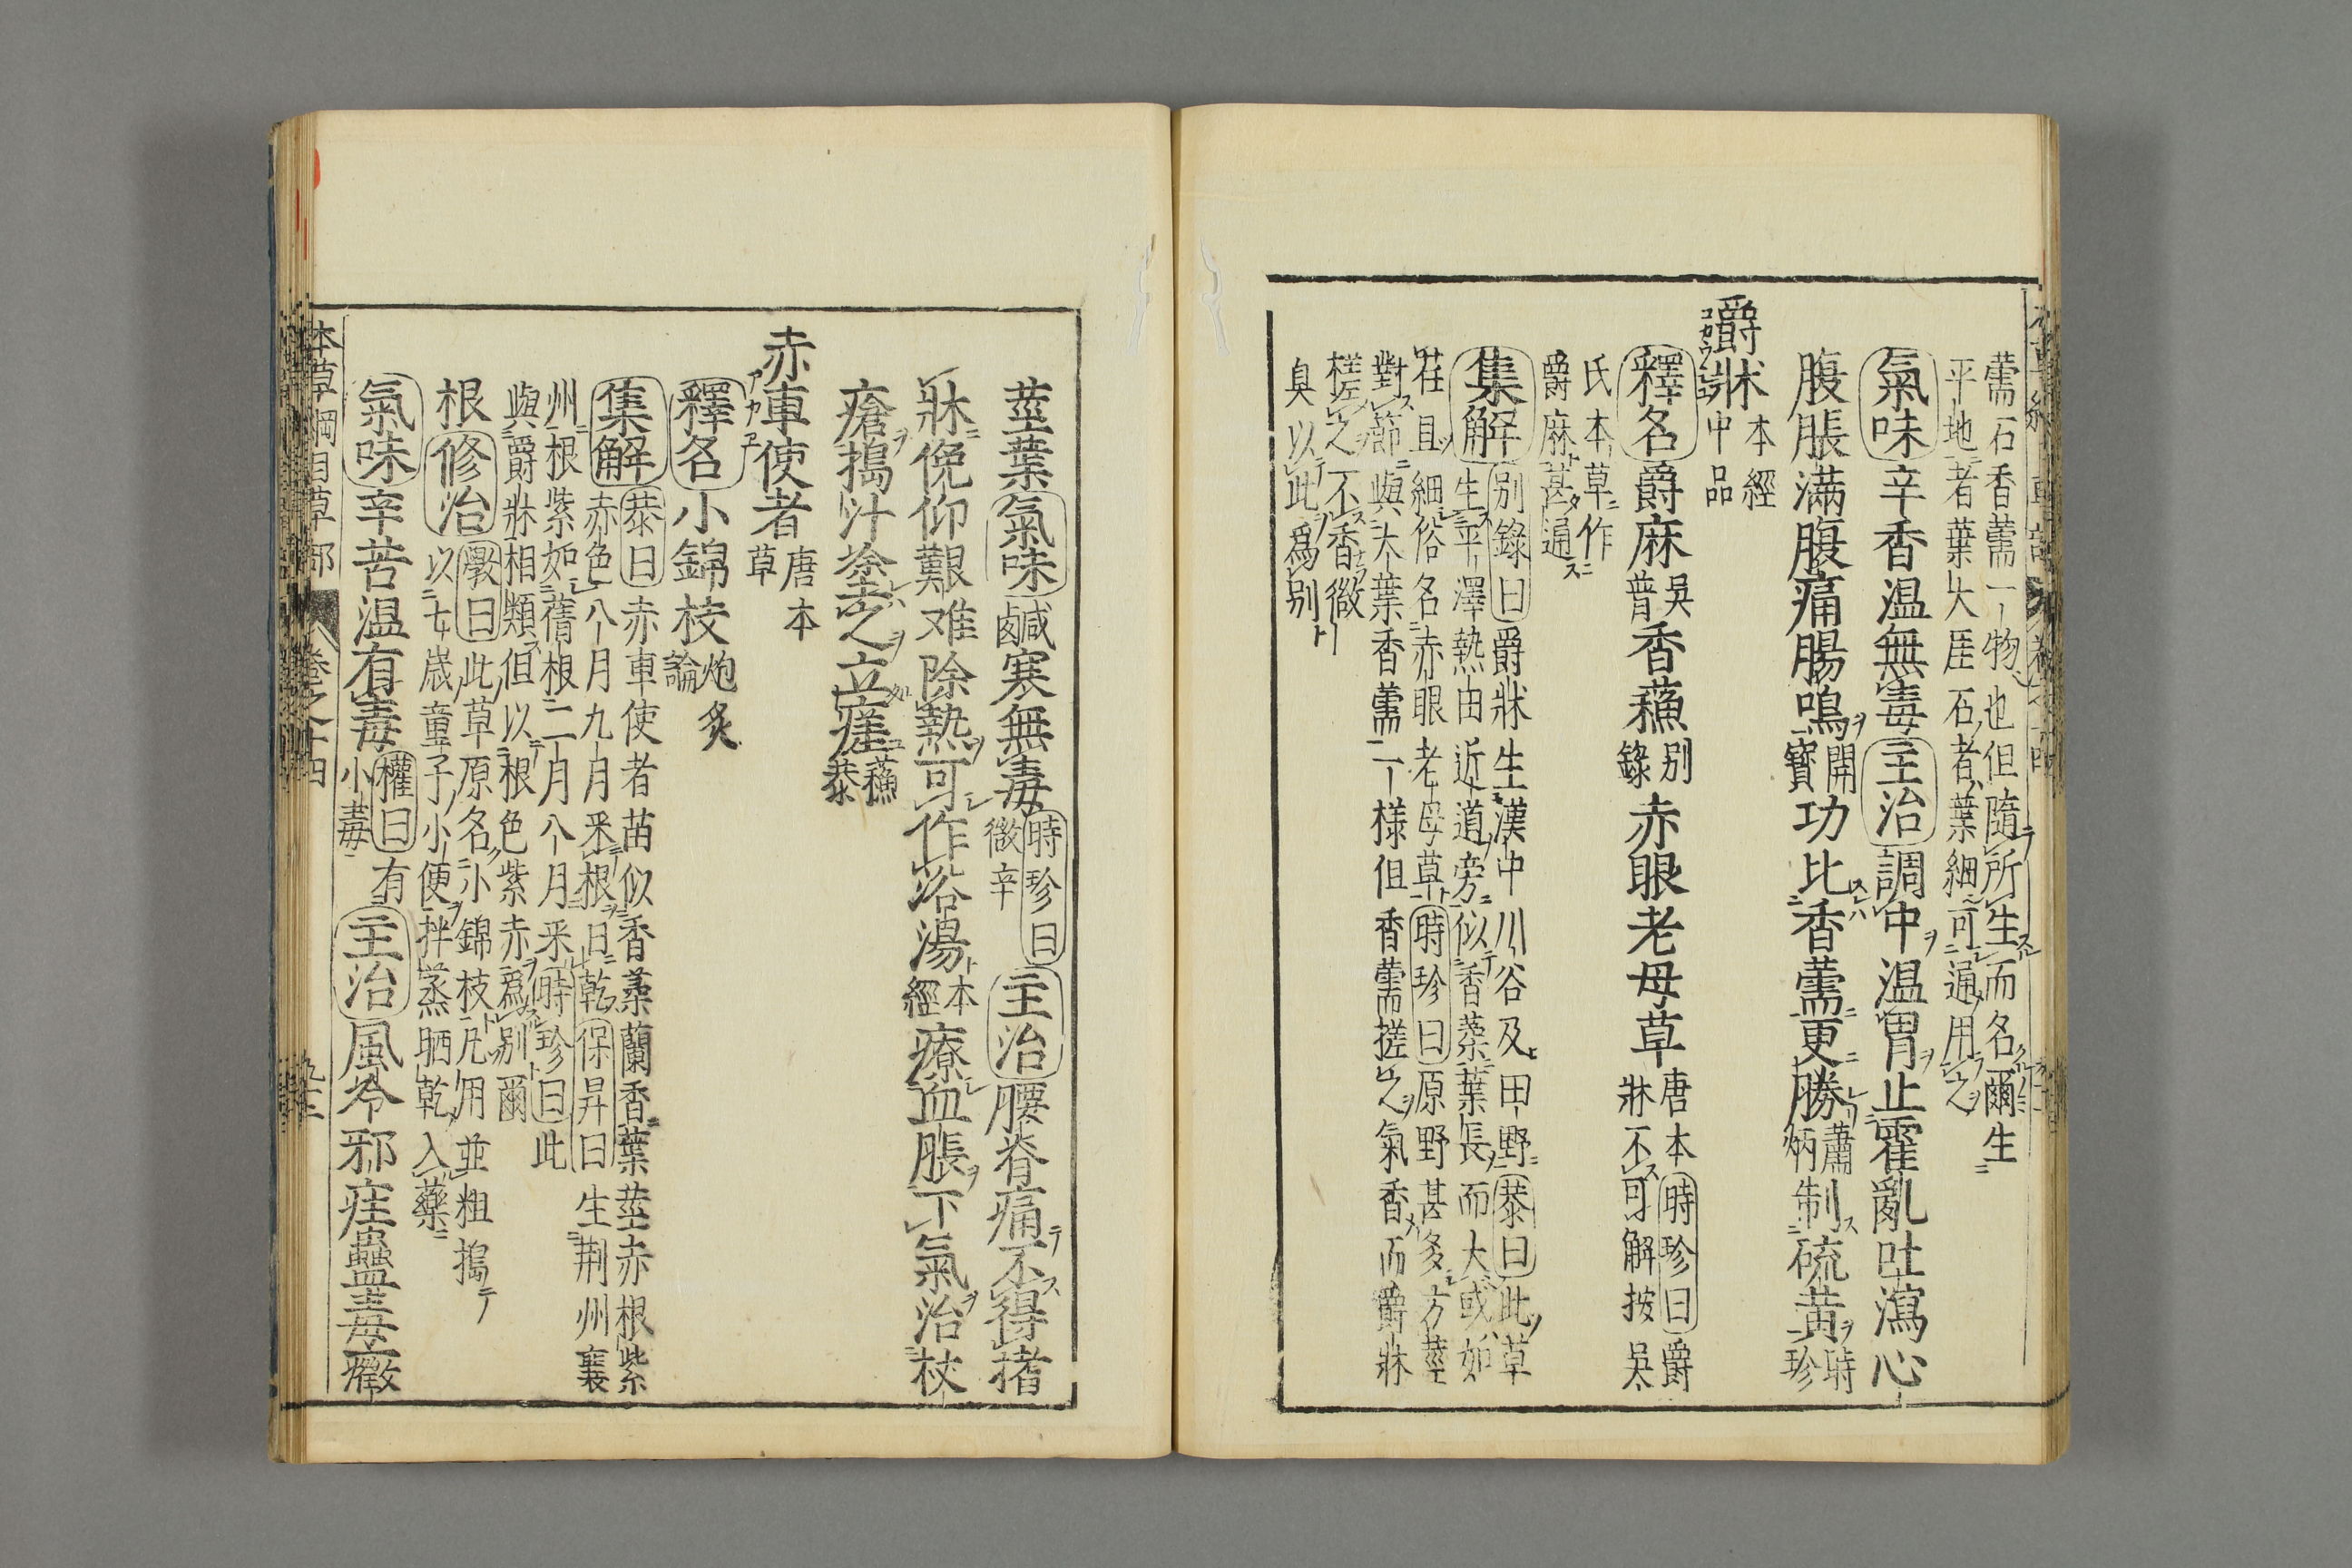 薷石香薷一物也但隨所生而名爾生
平地者葉大厓石者葉細可通用之
氣味辛香温無毒主治調中温胃止霍亂吐瀉心
腹脹滿腹痛腸鳴開寶功比香薷更勝蕭炳制硫黄時珍
爵牀本經中品
釋名爵麻吳普香蘓別錄赤眼老母草唐本時珍曰爵牀不可解按吳
氏本草作
爵麻甚通
集解別錄曰爵牀生漢中川谷及田野恭曰此草
生平澤熟田近道旁似香葇葉長而大或如
荏且細俗名赤眼老母草時珍曰原野甚多方莖
對節與大葉香薷一様但香薷搓之氣香而爵牀
搓之不香微
臭以此爲別
莖葉氣味鹹寒無毒時珍曰微辛主治腰脊痛不得著
牀俛仰艱难除熱可作浴湯本經療血脹下氣治杖
瘡搗汁塗之立瘥蘓恭
赤車使者唐本草
アカヱ
釋名小錦枝炮炙論
集解恭曰赤車使者苗似香葇蘭香葉莖赤根紫
赤色八月九月采根日乾保昇曰生荆州襄
州根紫如蒨根二月八月采時珍曰此
與爵牀相類但以根色紫赤爲別爾
根修治斆曰此草原名小錦枝凡用並粗搗
以七歲童子小便拌蒸晒乾入藥
氣味辛苦温有毒權曰有小毒主治風冷邪疰蠱毒癥
本草綱目草部 卷之十四 九十二